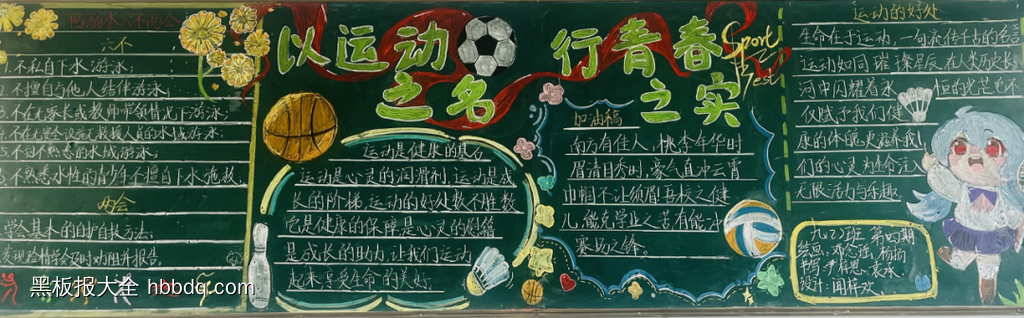 防溺水六不两会
六不
1.不私自下水游泳;
2.不擅自与他人结伴游泳;
3.不在无家长或教师带领情况下游泳;
4.不在无安全设施无救援人员的水域游泳;
5.不到不熟悉的水域游泳;
6.不熟悉水性的青少年不擅自下水施救。
两会
学会基本的自护自救方法;
发现险情会及时呼救报告。
以运动
之名
行青春
之实
Sport
运动是健康的基石
运动是心灵的润滑剂,运动是成
长的阶梯,运动的好处数不胜数
它是健康的保障是心灵的慰籍
是成长的助力,让我们运动
起来享受生命的美好。
加油稿
南方有佳人,桃李年华时
眉清目秀时,豪气直冲云霄
巾帼不让须眉
儿,能克学业之苦
运动的好处
生命在于运动,一句流传千古的名言
运动如同璀璨星辰,在人类历史长
河中闪耀着永恒的光芒它不
仅赋予我们健
康的体魄,更
们的心灵为生命注入
无限活力与乐趣
九(2)班 第四期
绘画:
书写:
设计:
黑板报大全 hbbdq.com